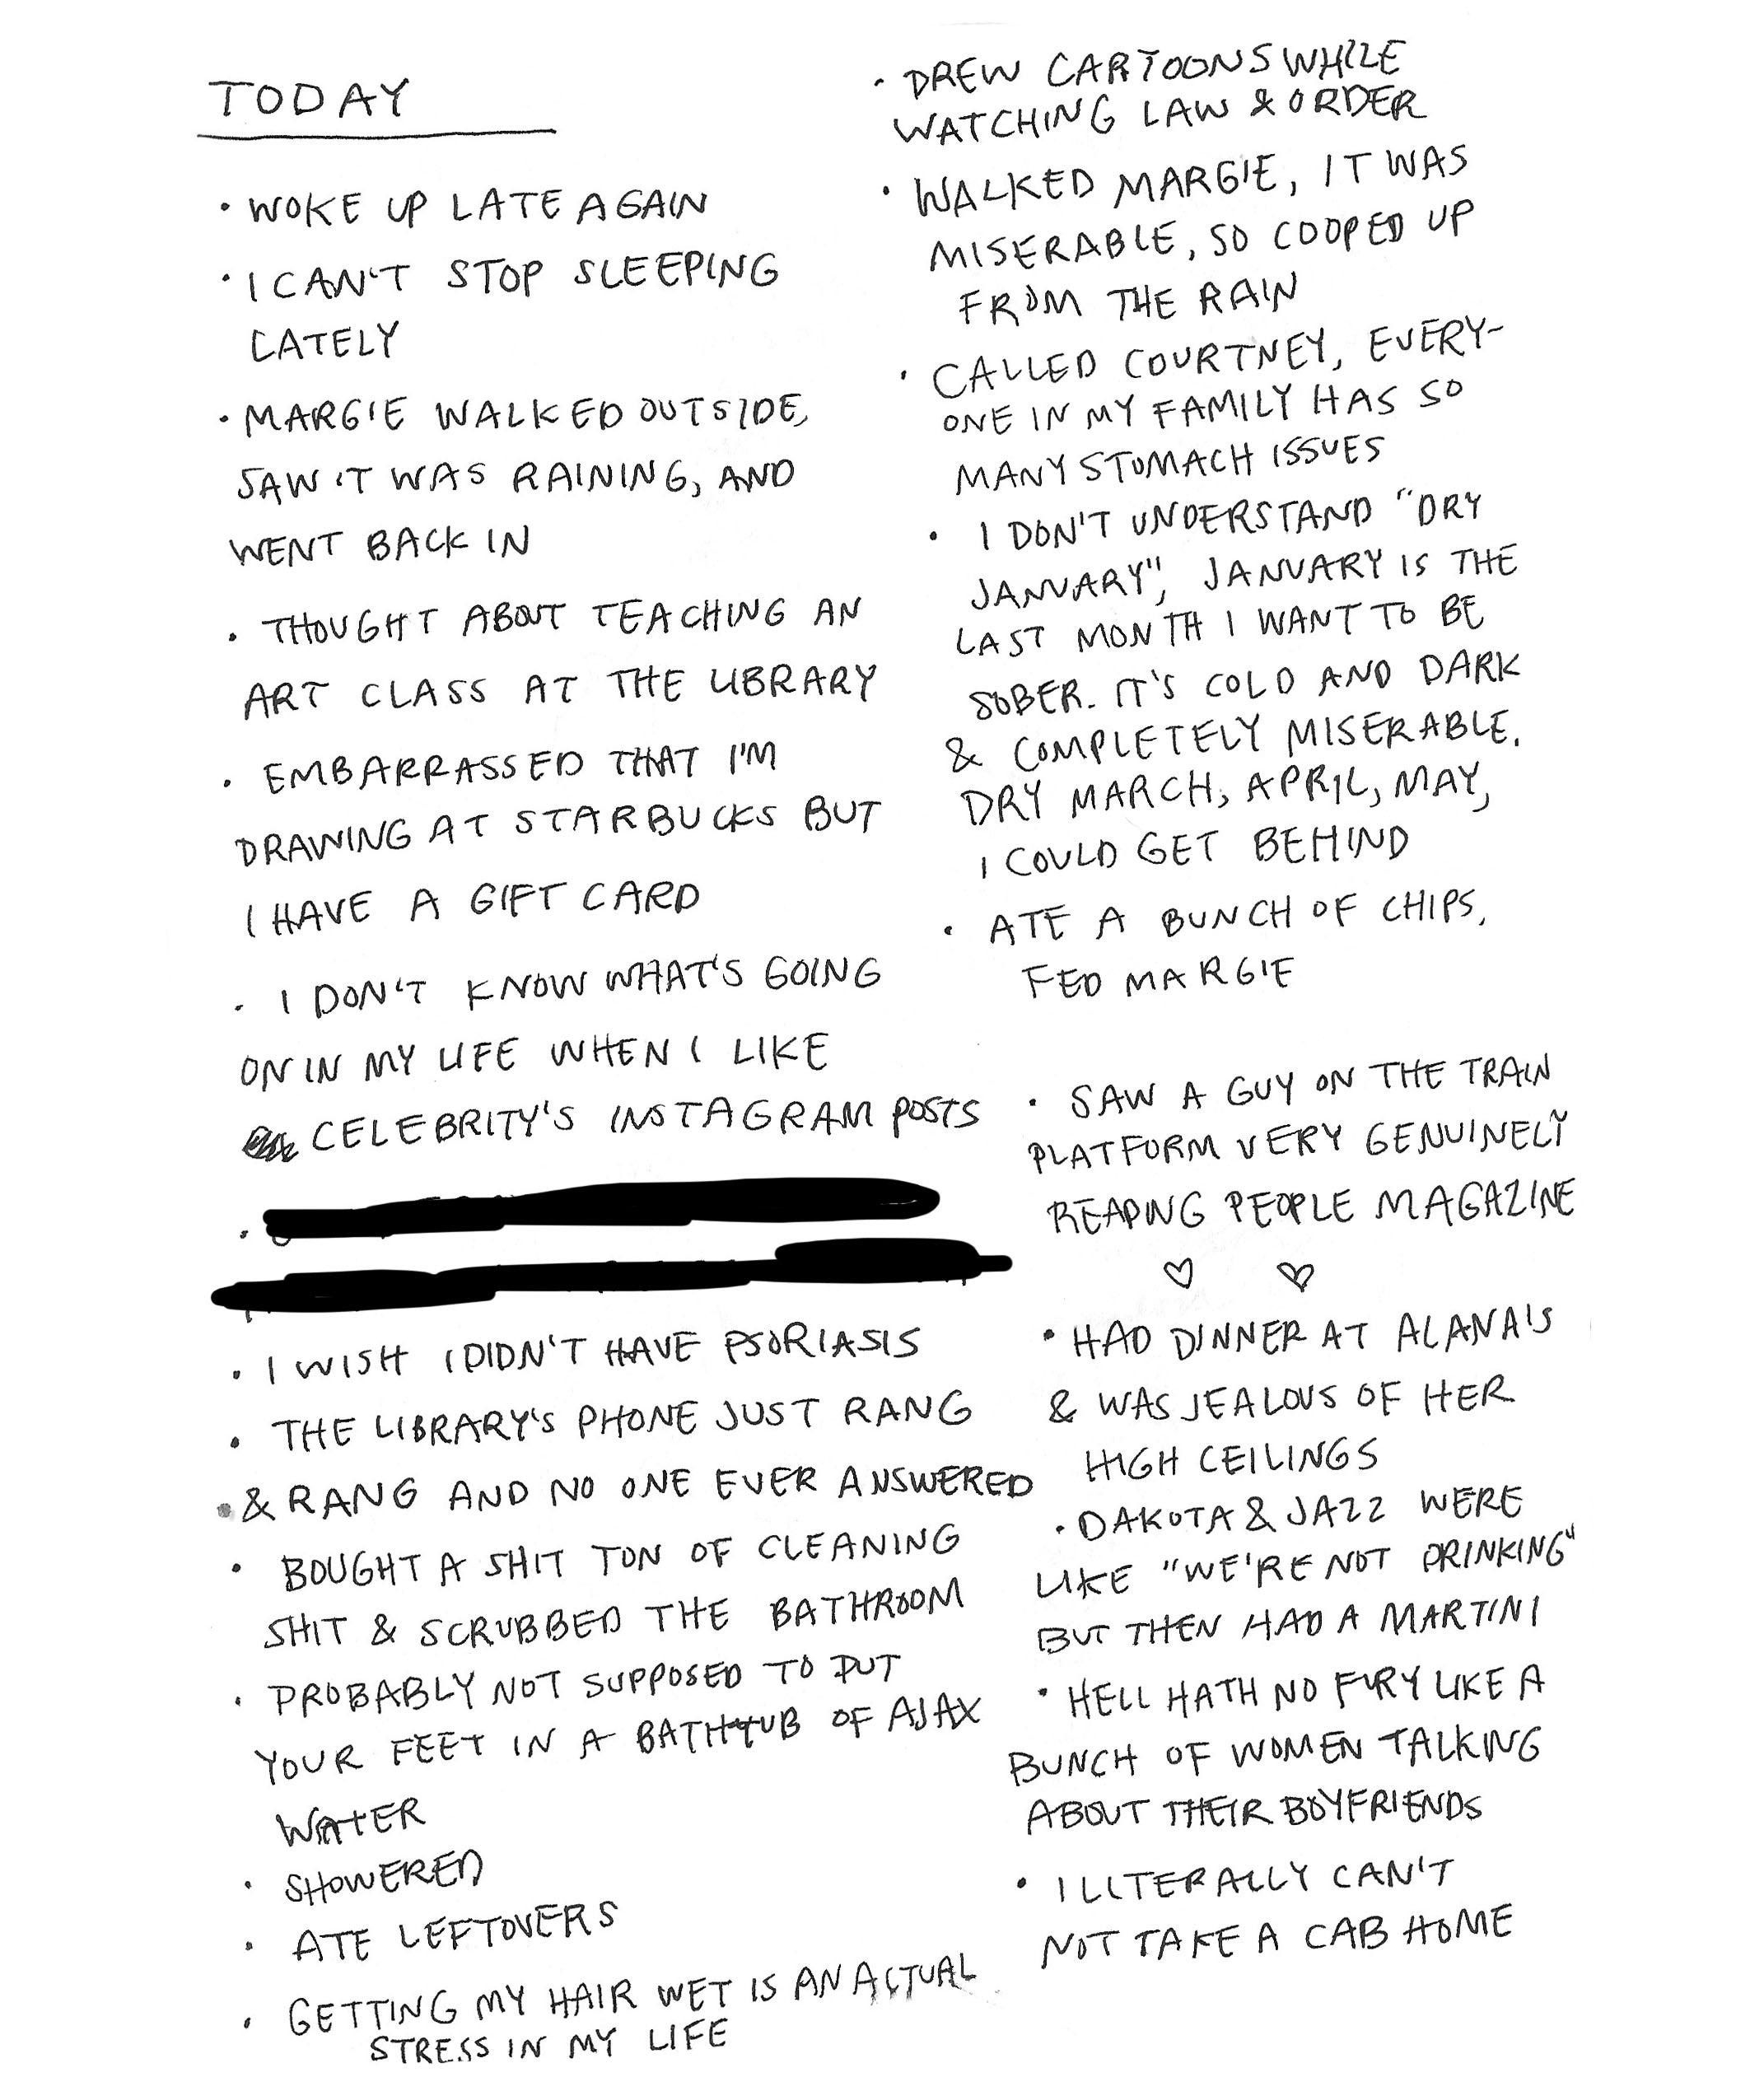 TODAY
· WOKE UP LATE AGAIN
· I CAN'T STOP SLEEPING
LATELY
· MARGIE WALKED OUTSIDE,
SAW IT WAS RAINING, AND
WENT BACK IN
· THOUGHT ABOUT TEACHING AN
ART CLASS AT THE LIBRARY
· EMBARRASSED THAT I'M
DRAWING AT STARBUCKS BUT
I HAVE A GIFT CARD
· I DON'T KNOW WHAT'S GOING
ON IN MY LIFE WHEN I LIKE
CELEBRITY'S INSTAGRAM POSTS
· I WISH I DIDN'T HAVE PSORIASIS
· THE LIBRARY'S PHONE JUST RANG
& RANG AND NO ONE EVER ANSWERED
· BOUGHT A SHIT TON OF CLEANING
SHIT & SCRUBBED THE BATHROOM
· PROBABLY NOT SUPPOSED TO PUT
YOUR FEET IN A BATHTUB OF AJAX
WATER
· SHOWERED
· ATE LEFTOVERS
· GETTING MY HAIR WET IS AN ACTUAL
STRESS IN MY LIFE
· DREW CARTOONS WHILE
WATCHING LAW & ORDER
· WALKED MARGIE, IT WAS
MISERABLE, SO COOPED UP
FROM THE RAIN
· CALLED COURTNEY, EVERY-
ONE IN MY FAMILY HAS SO
MANY STOMACH ISSUES
· I DON'T UNDERSTAND "DRY
JANUARY", JANUARY IS THE
LAST MONTH I WANT TO BE
SOBER. IT'S COLD AND DARK
& COMPLETELY MISERABLE.
DRY MARCH, APRIL, MAY,
I COULD GET BEHIND
· ATE A BUNCH OF CHIPS,
FED MARGIE
· SAW A GUY ON THE TRAIN
PLATFORM VERY GENUINELY
READING PEOPLE MAGAZINE
♡ ♡
· HAD DINNER AT ALANA'S
& WAS JEALOUS OF HER
HIGH CEILINGS
· DAKOTA & JAZZ WERE
LIKE "WE'RE NOT DRINKING"
BUT THEN HAD A MARTINI
· HELL HATH NO FURY LIKE A
BUNCH OF WOMEN TALKING
ABOUT THEIR BOYFRIENDS
· I LITERALLY CAN'T
NOT TAKE A CAB HOME